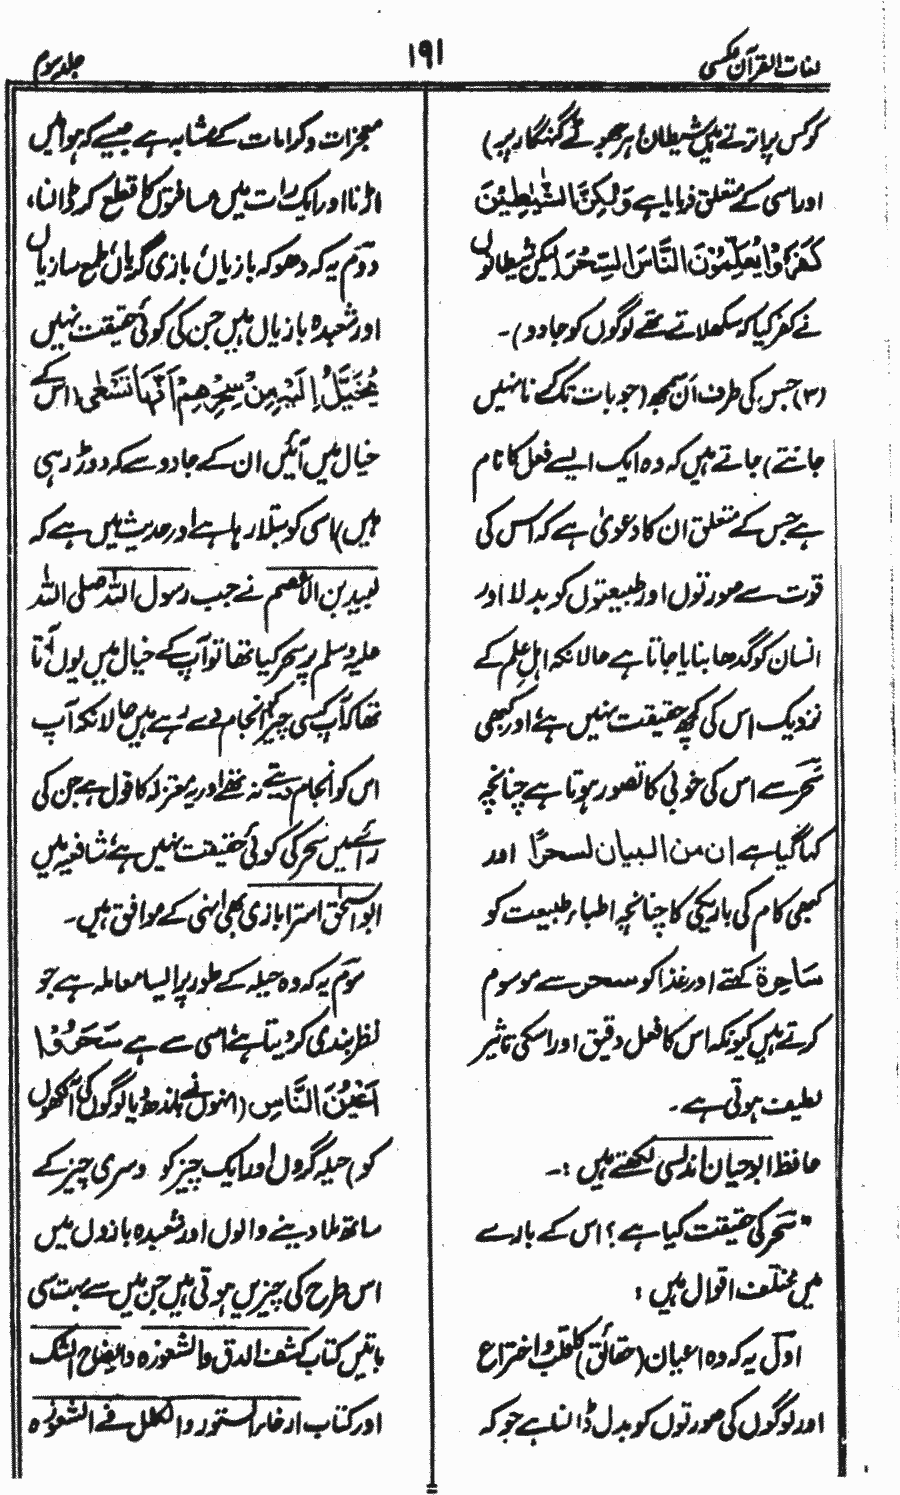 لغات القرآن عکسی
۱۹۱
جلد سوم
کو کس پر اترتے ہیں شیطان؛ ہر جھوٹے گنہگار پر)
اور اسی کے متعلق فرمایا ہے وَلٰکِنَّ الشَّیٰطِیْنَ
کَفَرُوْا یُعَلِّمُوْنَ النَّاسَ السِّحْرَ (لیکن شیطانوں
نے کفر کیا کہ سکھلاتے تھے لوگوں کو جادو)۔
(۳) جس کی طرف اَن سمجھ (جو بات تک نہیں
جانتے) جاتے ہیں کہ وہ ایک ایسے فعل کا نام
ہے جس کے متعلق ان کا دعویٰ ہے کہ اس کی
قوت سے صورتوں اور طبیعتوں کو بدلا اور
انسان کو گدھا بنایا جاتا ہے حالانکہ اہل علم کے
نزدیک اس کی کچھ حقیقت نہیں ہے؛ اور کبھی
سحر سے اس کی خوبی کا تصور ہوتا ہے چنانچہ
کہا گیا ہے ان من البیان لسحرًا اور
کبھی کام کی باریکی کا چنانچہ اطباء طبیعت کو
ساحرۃ کہتے اور غذا کو سحر سے موسوم
کرتے ہیں کیونکہ اس کا فعل دقیق اور اسکی تاثیر
لطیف ہوتی ہے۔
حافظ ابو حیان اندلسی لکھتے ہیں :۔
"سحر کی حقیقت کیا ہے ؟ اس کے بارے
میں مختلف اقوال ہیں :
اول یہ کہ وہ اعیان (حقائق) کا قلب و اختراع
اور لوگوں کی صورتوں کو بدل ڈالنا ہے جو کہ
معجزات و کرامات کے مشابہ ہے جیسے کہ ہوا میں
اڑنا اور ایک رات میں مسافتوں کا قطع کر ڈالنا،
دوم یہ کہ دھوکہ بازیاں، بازی گریاں، ملمع سازیاں
اور شعبدہ بازیاں ہیں جن کی کوئی حقیقت نہیں
یُخَیَّلُ اِلَیْہِ مِنْ سِحْرِھِمْ اَنَّہَا تَسْعٰی (اس کے
خیال میں آئیں ان کے جادو سے کہ دوڑ رہی
ہیں) اسی کو بتلا رہا ہے اور حدیث میں ہے کہ
لبید بن الاعصم نے جب رسول اللہ صلی اللہ
علیہ وسلم پر سحر کیا تھا تو آپ کے خیال میں یوں آتا
تھا کہ آپ کسی چیز کو انجام دے رہے ہیں حالانکہ آپ
اس کو انجام دیتے نہ تھے اور یہ معتزلہ کا قول ہے جن کی
رائے میں سحر کی کوئی حقیقت نہیں ہے، شافعیہ میں
ابو اسحٰق استرابازی بھی انہی کے موافق ہیں۔
سوم یہ کہ وہ حیلہ کے طور پر ایسا معاملہ ہے جو
نظر بندی کر دیتا ہے، اسی سے ہے سَحَرُوْٓا
اَعْیُنَ النَّاسِ (انہوں نے باندھ دیا لوگوں کی آنکھوں
کو) حیلہ گروں اور ایک چیز کو دوسری چیز کے
ساتھ ملا دینے والوں اور شعبدہ بازوں میں
اس طرح کی چیزیں ہوتی ہیں جن میں سے بہت سی
باتیں کتاب کشف الدق والشعوذہ وایضاح الشک
اور کتاب ارخاء الستور والکلل فے الشعوذہ